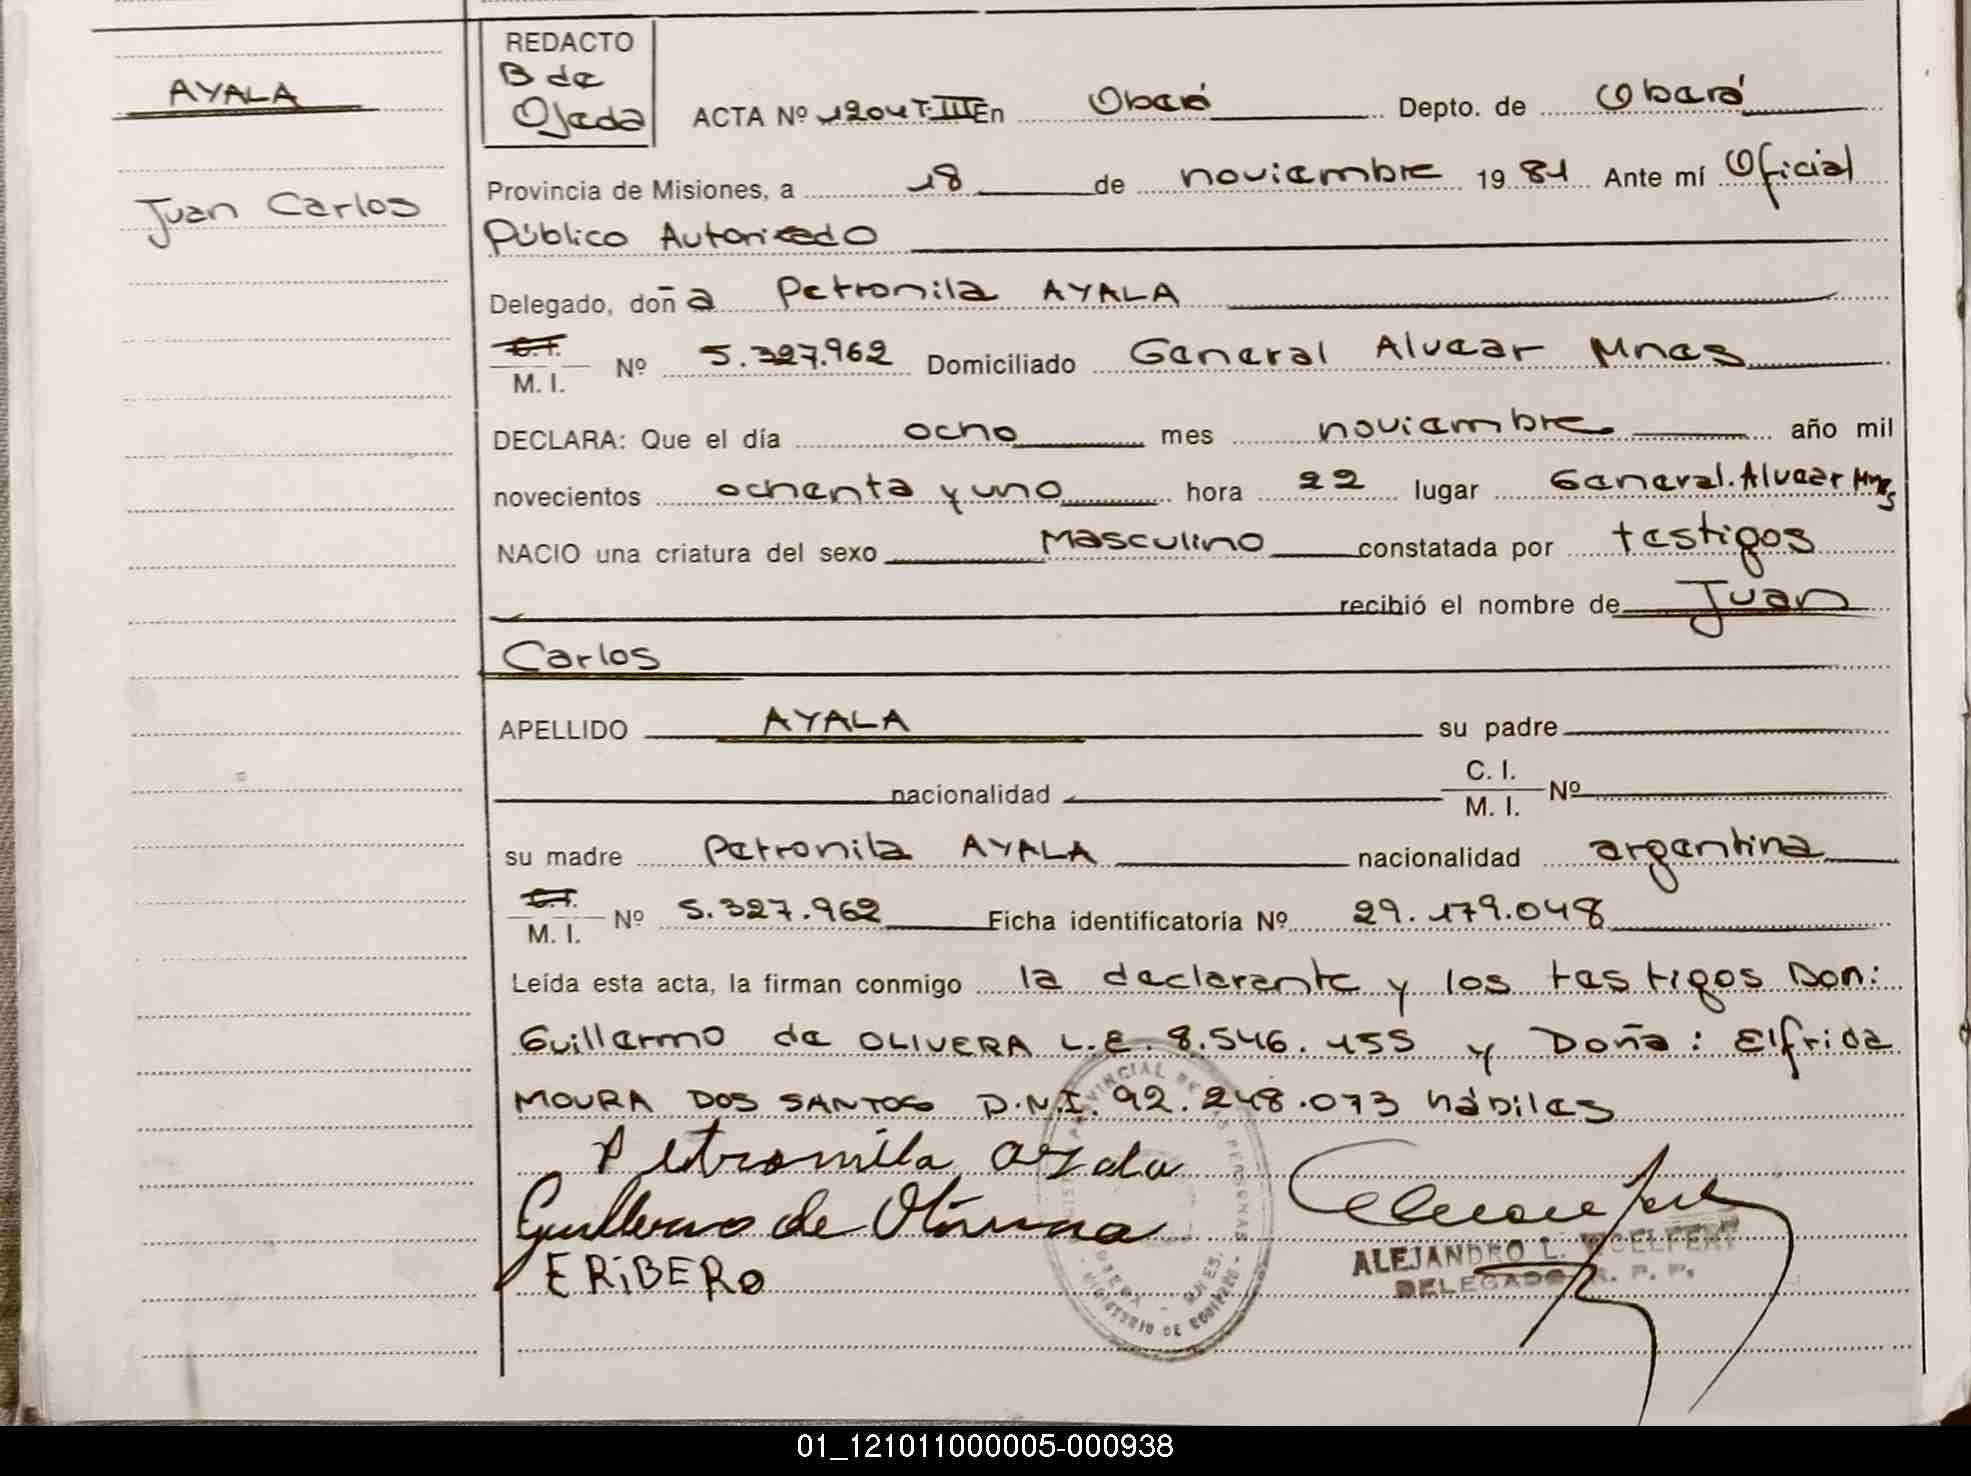 REDACTO
B de
Ojeda
AYALA
Juan Carlos
ACTA Nº 1204 T.III En Oberá Depto. de Oberá
Provincia de Misiones, a 18 de noviembre 1981 Ante mí Oficial
Público Autorizado
Delegado, doña Petronila AYALA
C.I.
M. I. Nº 5.327.962 Domiciliado General Alvear Mnes
DECLARA: Que el día ocho mes noviembre año mil
novecientos ochenta y uno hora 22 lugar General.Alvear Mnes
NACIO una criatura del sexo Masculino constatada por testigos
recibió el nombre de Juan
Carlos
APELLIDO AYALA su padre
nacionalidad C. I. M. I. Nº
su madre Petronila AYALA nacionalidad argentina
C.I.
M. I. Nº 5.327.962 Ficha identificatoria Nº 29.179.048
Leída esta acta, la firman conmigo la declarante y los testigos Don:
Guillermo de OLIVERA L.E. 8.546.455 y Doña: Elfrida
MOURA DOS SANTOS D.N.I. 92.248.073 hábiles
Petronila Ayala
Guillermo de Olivera
ERiBERo
ALEJANDRO L.
DELEGADO R. P. P.
01_121011000005-000938